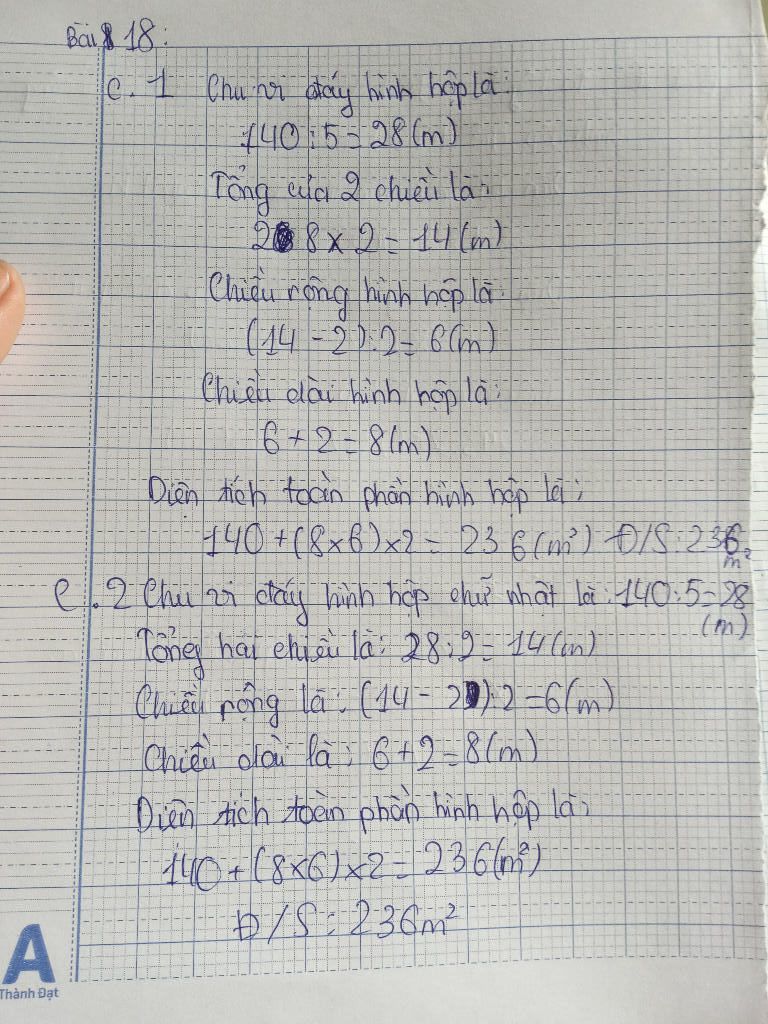 Bài 18:
C.1 Chu vi đáy hình hộp là:
140:5=28(m)
Tổng của 2 chiều là:
28 x 2=14(m)
Chiều rộng hình hộp là:
(14-2):2=6(m)
Chiều dài hình hộp là:
6+2=8(m)
Diện tích toàn phần hình hộp là:
140+(8x6)x2=236(m²) Đ/S:236
m²
C.2 Chu vi đáy hình hộp chữ nhật là:140:5=28
(m)
Tổng hai chiều là: 28:2=14(m)
Chiều rộng là: (14-2):2=6(m)
Chiều dài là: 6+2=8(m)
Diện tích toàn phần hình hộp là:
140+(8x6)x2=236(m²)
Đ/S: 236m²
A
Thành Đạt